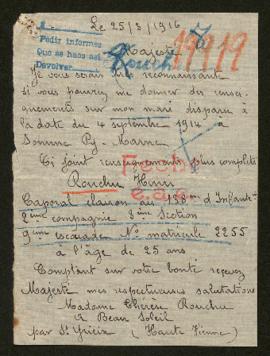 Le 25/8/1916
Pedir informes
Que se haos asi
Devolver
Rouchu
19919
Majesté
Je vous serais très reconnaissante
si vous pourriez me donner des rensei-
gnements sur mon mari disparu à
la date du 4 septembre 1914 à
Somme Py - Marne
Ci joint renseignements plus complets
Fecho
Rouchu Henri
Caporal clairon au 138e d'Infante
2eme compagnie 8eme Section
9eme escouade No matricule 2255
à l'âge de 25 ans
Comptant sur votre bonté recevez
Majesté mes respectueuses salutations
Madame Thérèse Rouchu
a Beau Soleil
par St Yrieix (Haute Vienne)